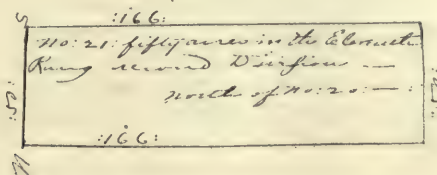 :166:
No: 21: fifty acres in the Eleventh
Rang second Division —
north of No: 20: — :
:166: